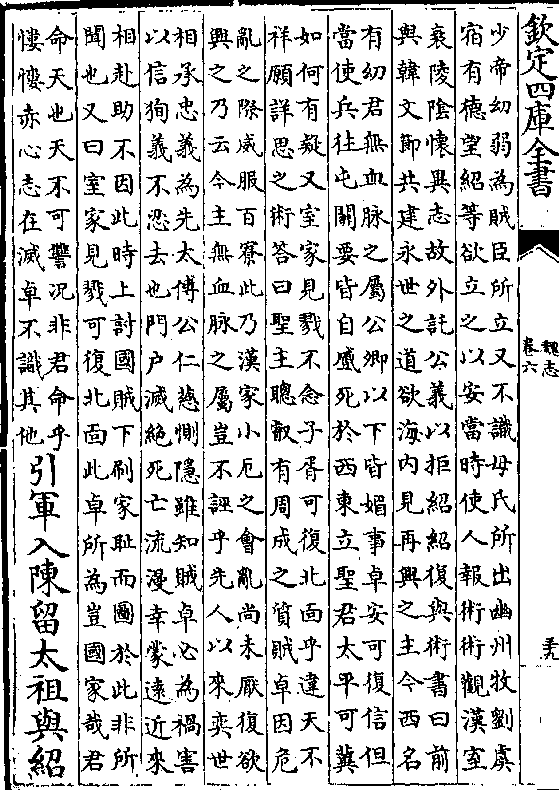 欽定四庫全書
魏志
卷六
少帝幼弱為賊臣所立又不識母氏所出幽州牧劉虞
宿有德望紹等欲立之以安當時使人報術術觀漢室
衰陵陰懷異志故外託公義以拒紹紹復與術書曰前
與韓文節共建永世之道欲海內見再興之主今西名
有幼君無血脉之屬公卿以下皆媚事卓安可復信但
當使兵往屯關要皆自蹙死於西東立聖君太平可冀
如何有疑又室家見戮不念子胥可復北面乎違天不
祥願詳思之術答曰聖主聰叡有周成之質賊卓因危
亂之際威服百寮此乃漢家小厄之會亂尚未厭復欲
興之乃云今主無血脉之屬豈不誣乎先人以來奕世
相承忠義為先太傅公仁慈惻隱雖知賊卓必為禍害
以信狥義不忍去也門户滅絕死亡流漫幸蒙遠近來
相赴助不因此時上討國賊下刷家恥而圖於此非所
聞也又曰室家見戮可復北面此卓所為豈國家哉君
命天也天不可讐况非君命乎
慺慺赤心志在滅卓不識其他
引軍入陳留太祖與紹